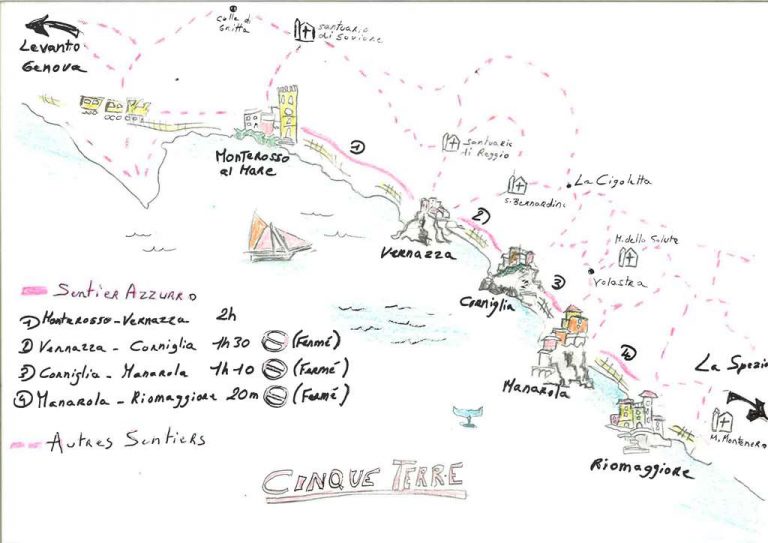 Colle di
Gritta
santuario
di Soviore
Levanto
Genova
①
Monterosso
al Mare
santuario
di Reggio
La Cigoletta
S. Bernardino
2)
Vernazza
M. della Salute
③
Volastra
Corniglia
④
Manarola
La Spezia
M. Montenero
Riomaggiore
Sentier Azzurro
① Monterosso - Vernazza 2h
② Vernazza - Corniglia 1h30 (Fermé)
③ Corniglia - Manarola 1h10 (Fermé)
④ Manarola - Riomaggiore 20m (Fermé)
Autres Sentiers
CINQUE TERRE